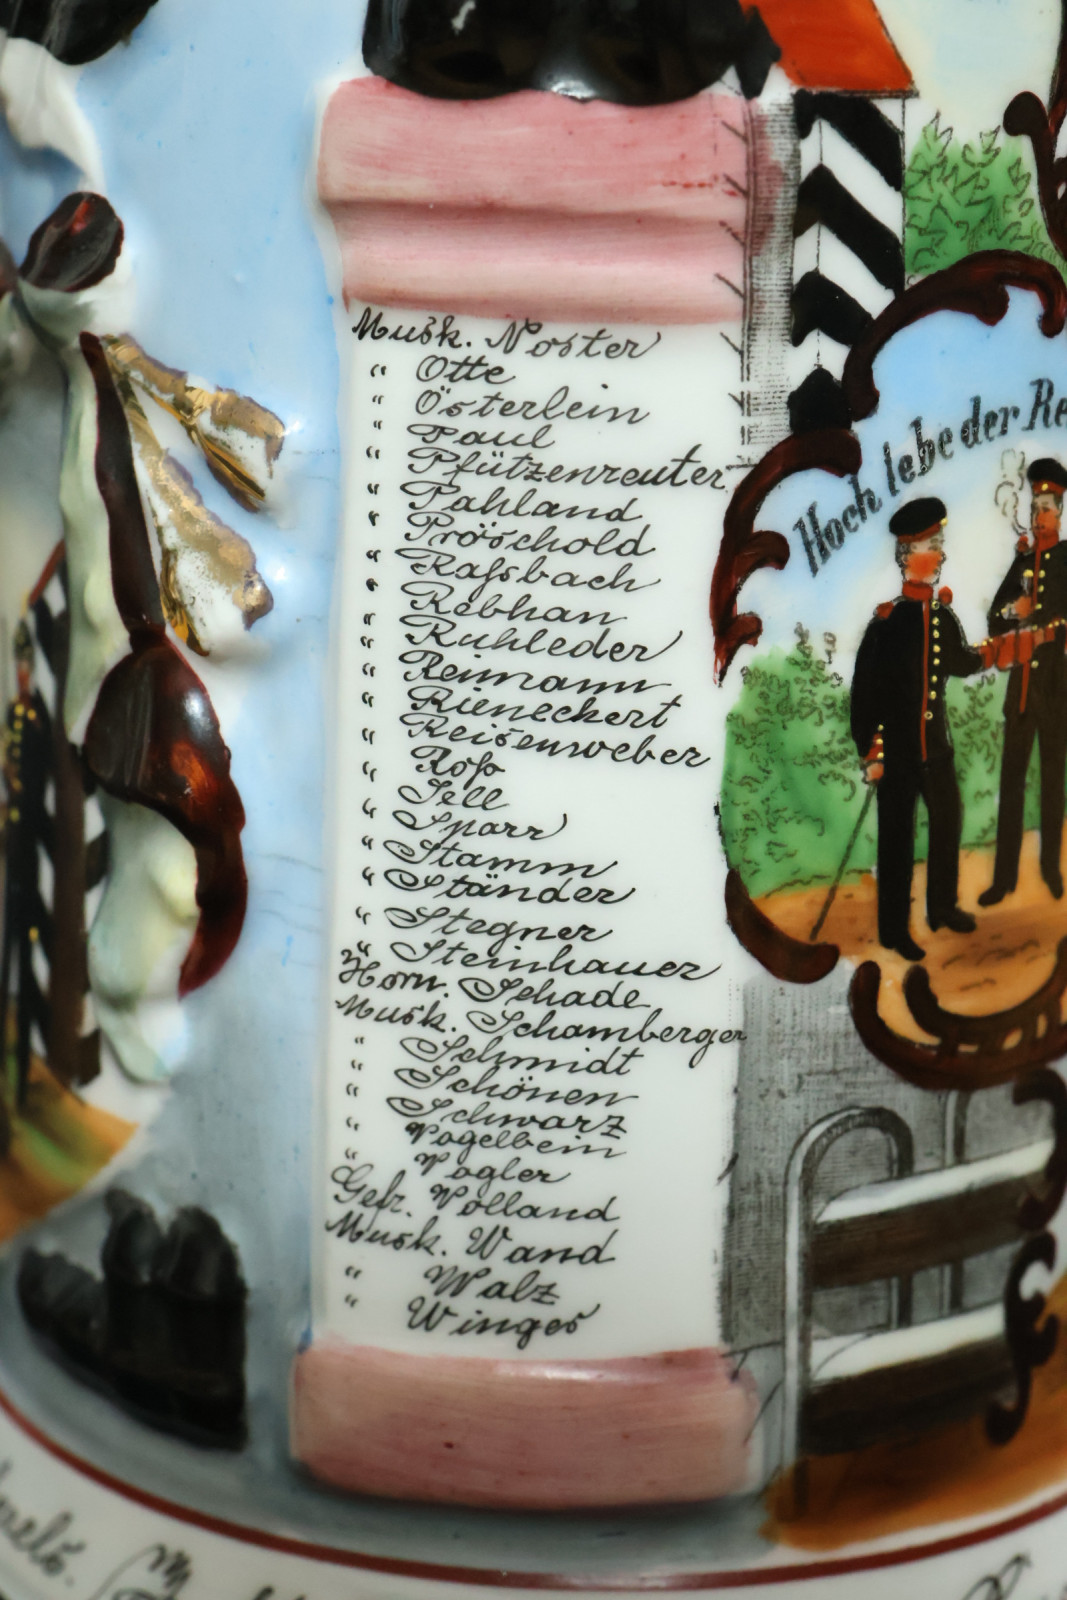 Musk. Noster
" Otte
" Österlein
" Paul
" Pfützenreuter
" Pahland
" Pröschold
" Raßbach
" Rebhan
" Ruhleder
" Reimann
" Rieneckert
" Reisenweber
" Roß
" Sell
" Sparr
" Stamm
" Ständer
" Stegner
" Steinhauer
Horn. Schade
Musk. Schamberger
" Schmidt
" Schönen
" Schwarz
" Vogelbein
" Vogler
Gefr. Volland
Musk. Wand
" Walz
" Winges
Hoch lebe der Re